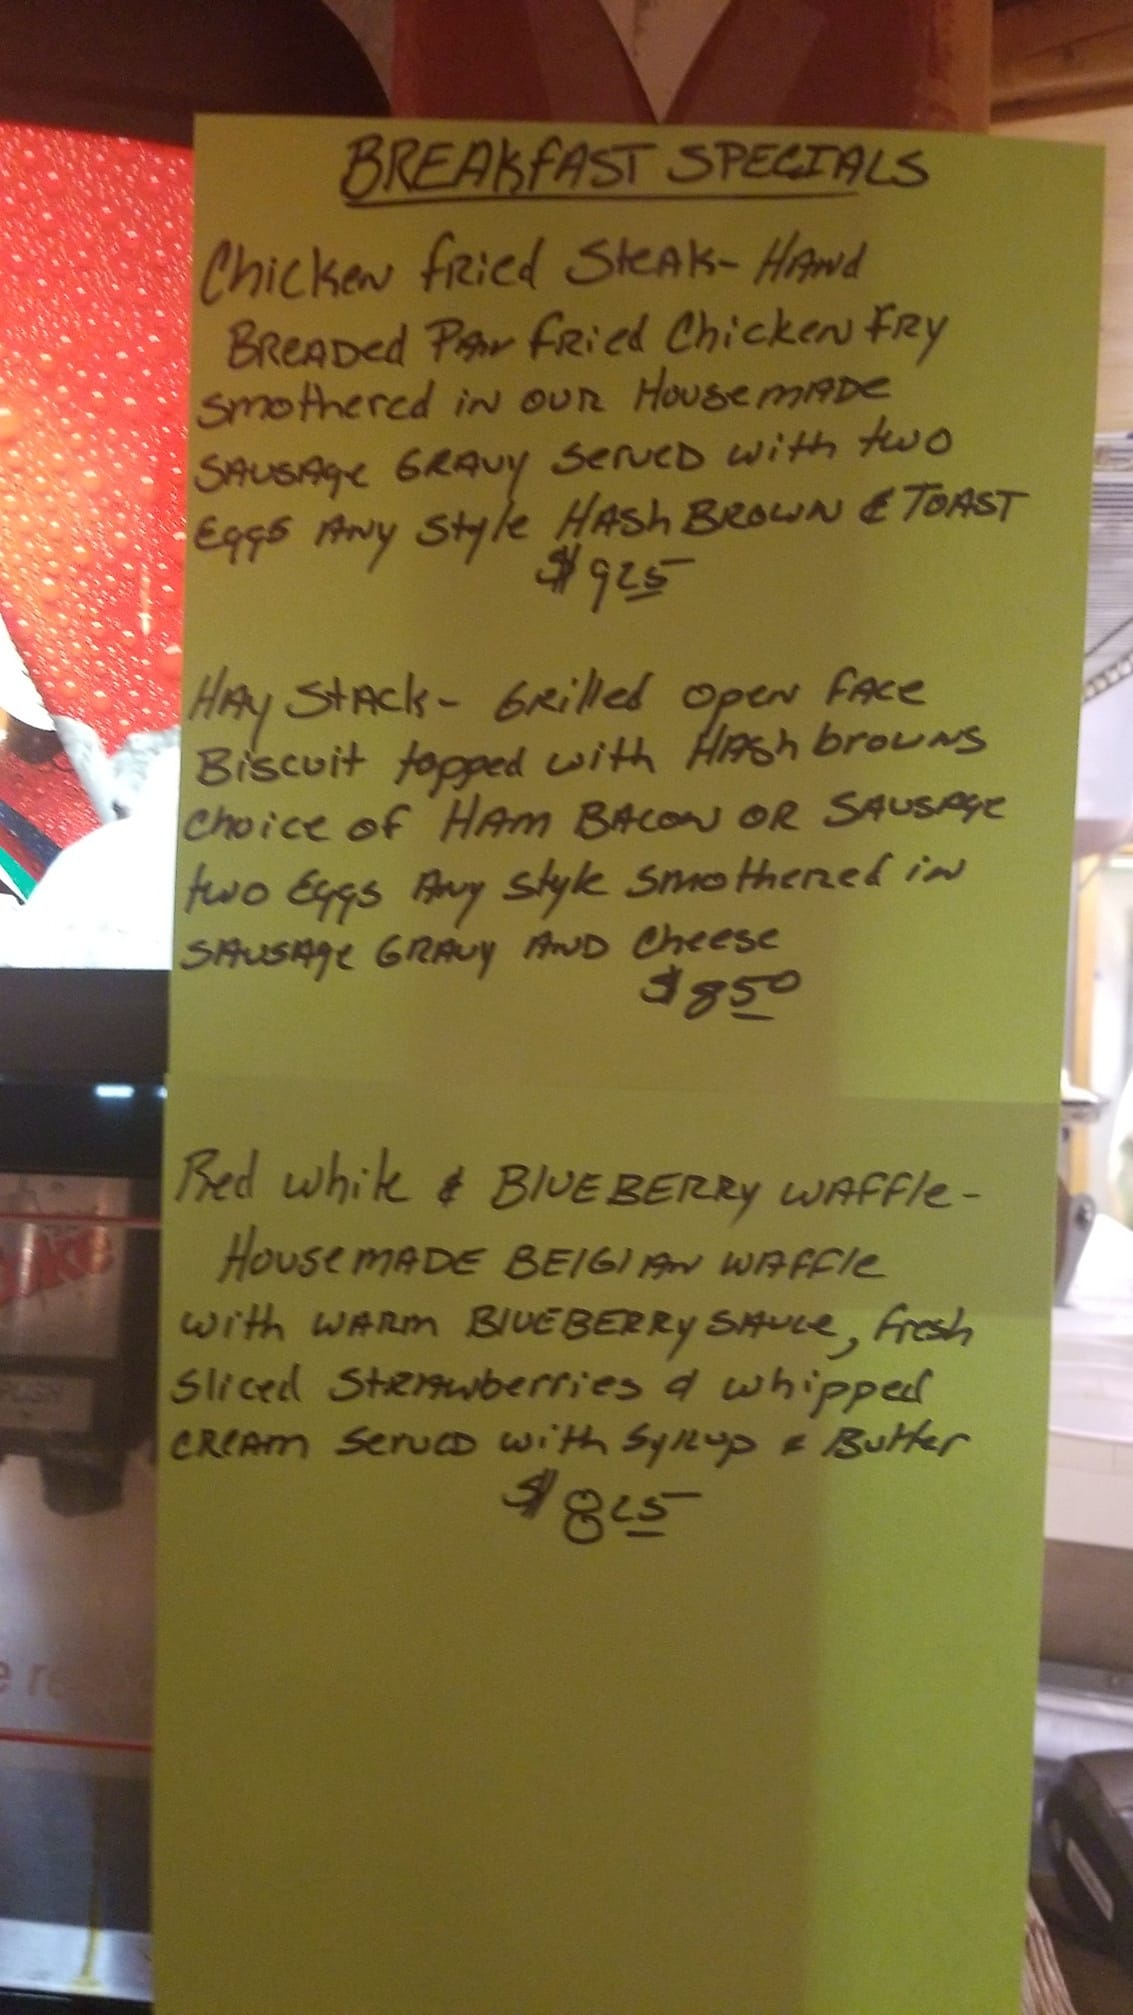 BREAKFAST SPECIALS
Chicken Fried Steak - Hand
Breaded Pan Fried Chicken Fry
smothered in our Housemade
Sausage Gravy served with two
Eggs Any Style Hash Brown & Toast
$9 25
Hay Stack - Grilled open face
Biscuit topped with Hash browns
choice of Ham Bacon or Sausage
two Eggs Any Style smothered in
Sausage Gravy and Cheese
$8 50
Red White & Blueberry Waffle -
Housemade Belgian Waffle
with warm Blueberry Sauce, fresh
sliced Strawberries & whipped
cream served with Syrup & Butter
$8 25
PUSH